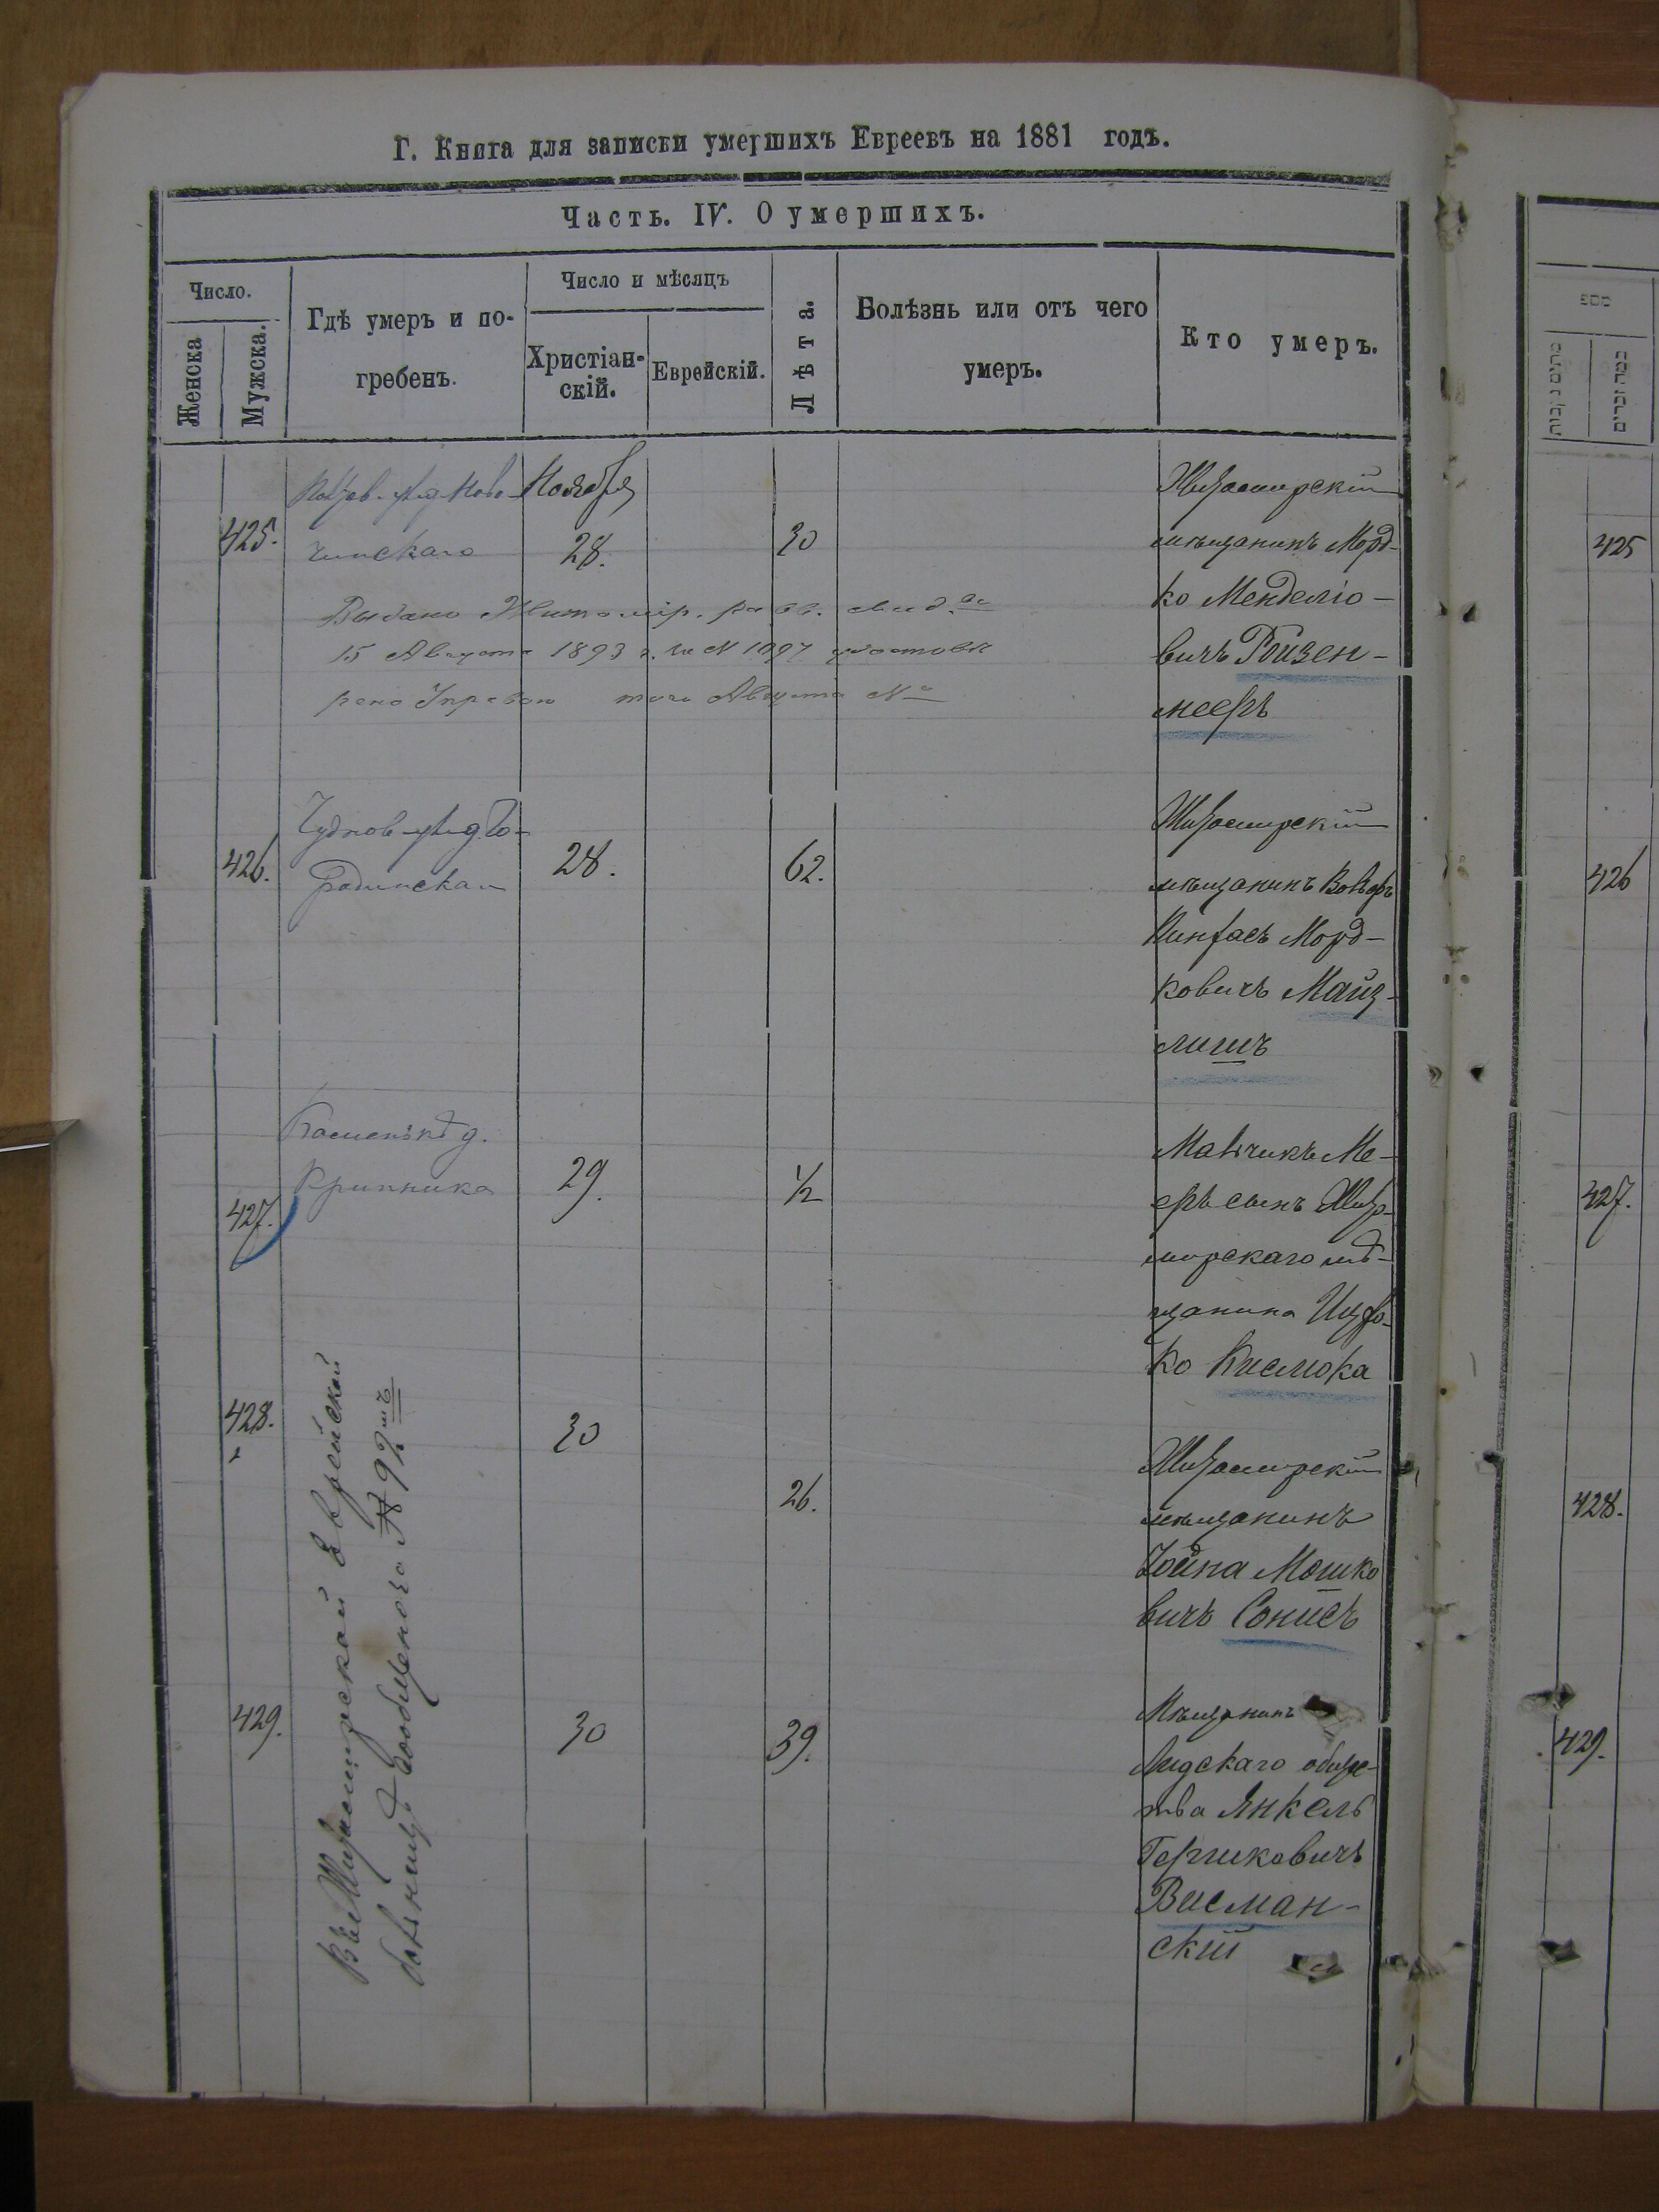 Г. Книга для записки умершихъ Евреевъ на 1881 годъ.
Часть. IV. О умершихъ.
Число.
Женска
Мужска.
Гдѣ умеръ и по-
гребенъ.
Число и мѣсяцъ
Христіан-
скій.
Еврейскій.
Лѣта.
Болѣзнь или отъ чего
умеръ.
Кто умеръ.
425.
Ноября
28.
30
Житомирскій
мѣщанинъ Морд-
ко Менделіо-
вичъ Ройзен-
мееръ
Выдано Житомір. равв. свид.
15 Августа 1893 г. за N 1097
того Августа №
426.
Чуднов
28.
62.
Житомирскій
мѣщанинъ Вольфъ
Пинхасъ Морд-
ковичъ Майз-
лишъ
427.
д.
Крипника
29.
1/2
Мальчикъ Ме-
еръ сынъ Жито-
мирскаго мѣ-
щанина Ицъ-
ко Кисмока
428.
30
26.
Житомирскій
мѣщанинъ
Іойна Мошко
вичъ Сонисъ
Въ Житомирской Еврейской
больницѣ сообщеного № 92
429.
30
39.
Мѣщанинъ
Лидскаго общес-
тва Янкель
Гершковичъ
Висман-
скій
425
426
427.
428.
429.